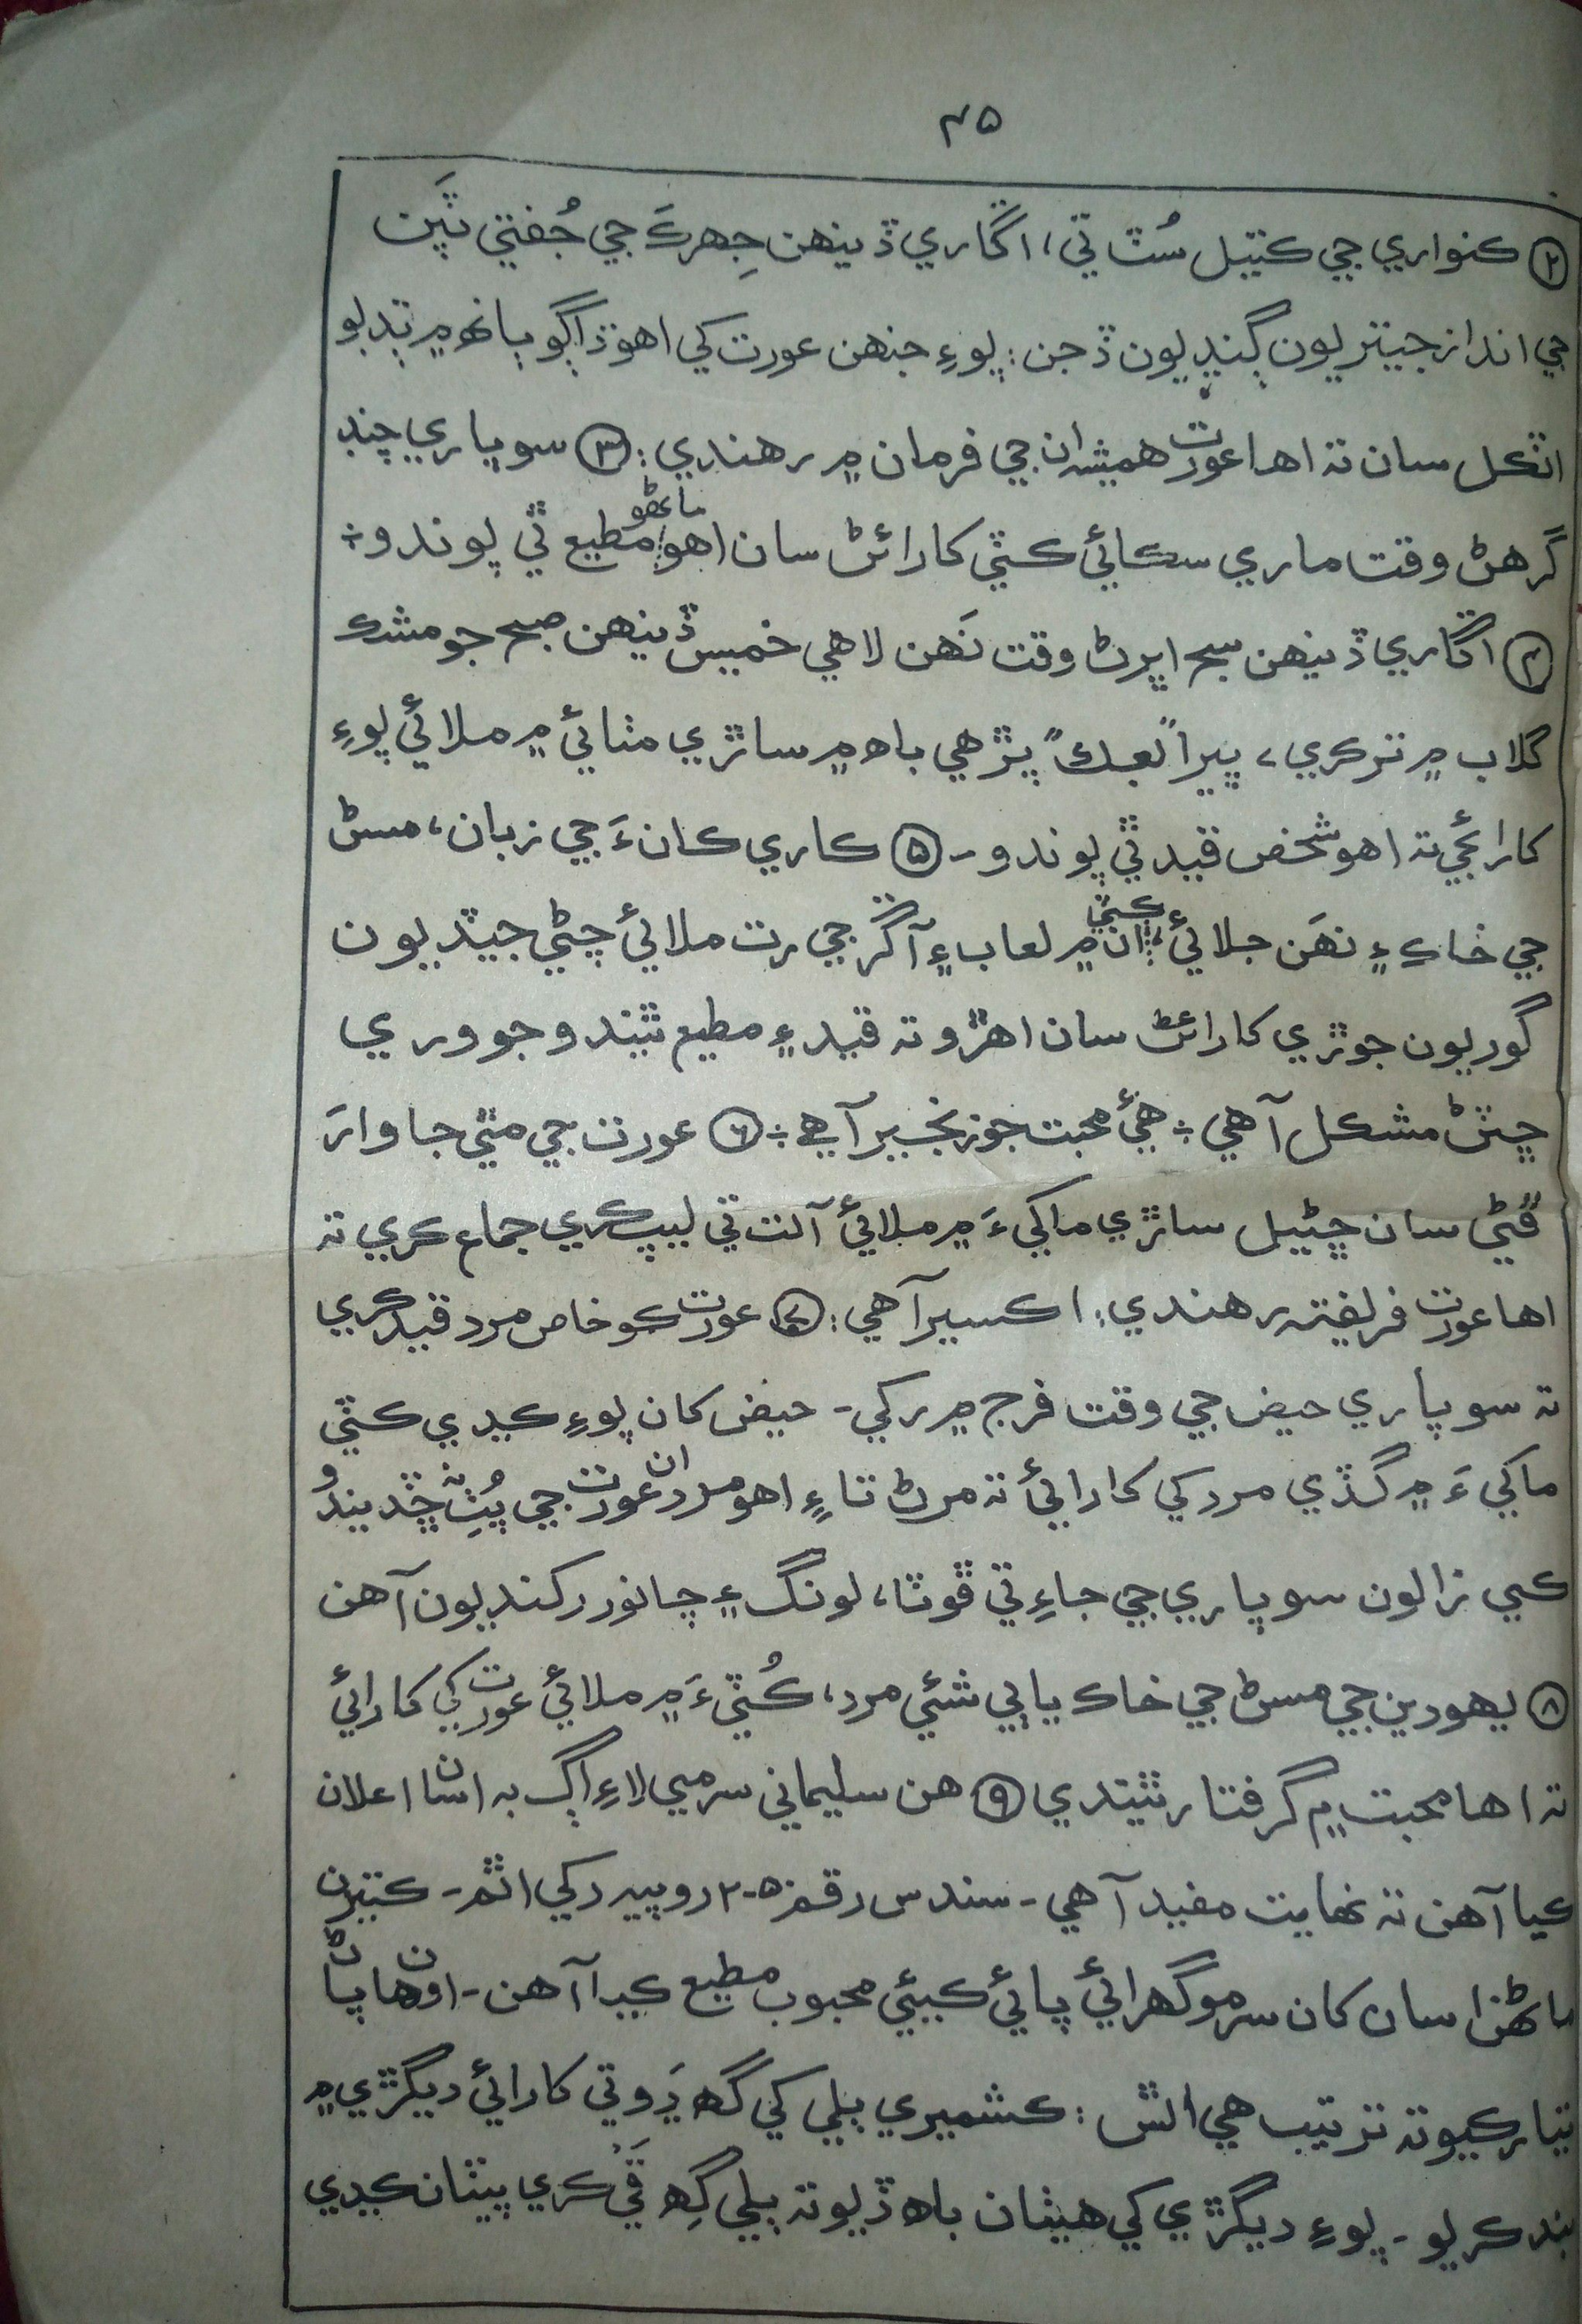 ۴۵
② ڪنواري جي ڪتيل سُٽ تي، اڱاري ڏينهن جِهرڪَ جي جُفتي ٿيَن
جي انداز جيتريون ڳنڍيون ڏجن: پوءِ جنهن عورت کي اهو ڌاڳو ٻانهن ۾ ٻڌبو
اٽڪل سان ته اها عورت هميشه ان جي فرمان ۾ رهندي: ③ سوپاري چنڊ
گرهڻ وقت ماري سڪائي ڪٽي کارائڻ سان اهو ماڻهو مطيع ٿي پوندو÷
④ اڱاري ڏينهن سج اڀرڻ وقت نَهن لاهي خميس ڏينهن صبح جو مشڪ
گلاب ۾ تر ڪري، پڙهي باهه ۾ ساڙي مٺائي ۾ ملائي پوءِ
کارائجي ته اهو شخص قيد ٿي پوندو - ⑤ ڪاري ڪانءَ جي زبان، مسڻ
جي خاڪ ۽ نهَن جلائي ڪٽي ان ۾ لعاب ۽ آڱر جي رت ملائي چڻي جيتيون
گوريون جوڙي کارائڻ سان اهڙو ته قيد ۽ مطيع ٿيندو جو وري
ڇٽڻ مشڪل آهي ÷ هيءُ محبت جو زنجير آهي ÷ ⑥ عورت جي مٿي جا وارَ
ڦڻي سان ڇڻيل ساڙي ماکيءَ ۾ ملائي آلت تي ليپ ڪري جماع ڪري ته
اها عورت فريفته رهندي: اڪسير آهي: ⑦ عورت ڪو خاص مرد قيد ڪري
ته سوپاري حيض جي وقت فرج ۾ رکي - حيض کان پوءِ ڪڍي ڪٽي
ماکيءَ ۾ گڏي مرد کي کارائي ته مرڻ تائين اهو مرد ان عورت جي پُٺِ نه ڇڏيندو
ڪي زالون سوپاري جي جاءِ تي ڦوٽا، لونگ ۽ چانور رکنديون آهن
⑧ يهودين جي مسڻ جي خاڪ يا ٻي شئي مرد، ڪُٽيءَ ۾ ملائي عورت کي کارائي
ته اها محبت ۾ گرفتار ٿيندي ⑨ هن سليماني سرمي لاءِ اڳ به اسان اعلان
ڪيا آهن ته نهايت مفيد آهي - سندس رقم ۲۰۵ روپيه رکي اٿم - ڪيترن
ماڻهن اسان کان سرمو گهرائي پائي ڪيئي محبوب مطيع ڪيا آهن - اوهان پاڻ
تيار ڪيو ته ترتيب هي اٿس: ڪشميري ٻلي کي گهه ڍَو تي کارائي ديگڙي ۾
بند ڪريو - پوءِ ديگڙي کي هيٺان باهه ڏيو ته ٻلي گِهه قَي ڪري پيٽان ڪڍي